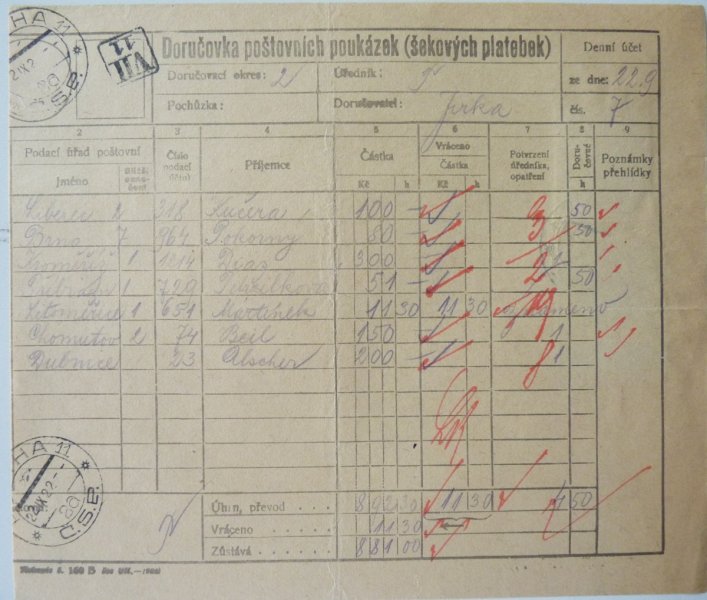 HA 11
VII 11
Doručovka poštovních poukázek (šekových platebek)
Denní účet
Doručovací okres: 2
Úředník:
ze dne: 22.9
Pochůzka:
Doručovatel: Jirka
čís. 7
2 3 4 5 6 7 8 9
Podací úřad poštovní
Jméno
Číslo podací (účtu)
Příjemce
Částka
Kč h
Vráceno
Částka
Kč h
Potvrzení úředníka, opatření
Doručovné
h
Poznámky přehlídky
Liberec 2 318 Kučera 100 — 50
Brno 7 964 Pokorny 80 — 50
Kroměříž 1 1014 300 — 1
Příbram 1 729 51 — 50
Litoměřice 1 651 Martinek 11 30 11 30
Chomutov 2 74 Beil 150 1
Dubnice 23 Alscher 200 — 1
HA 11
22.IX.22
Č.S.P.
Úhrn, převod . . . 842 30 11 30 4 50
Vráceno . . . . . 11 30
Zůstává . . . . . 881 00